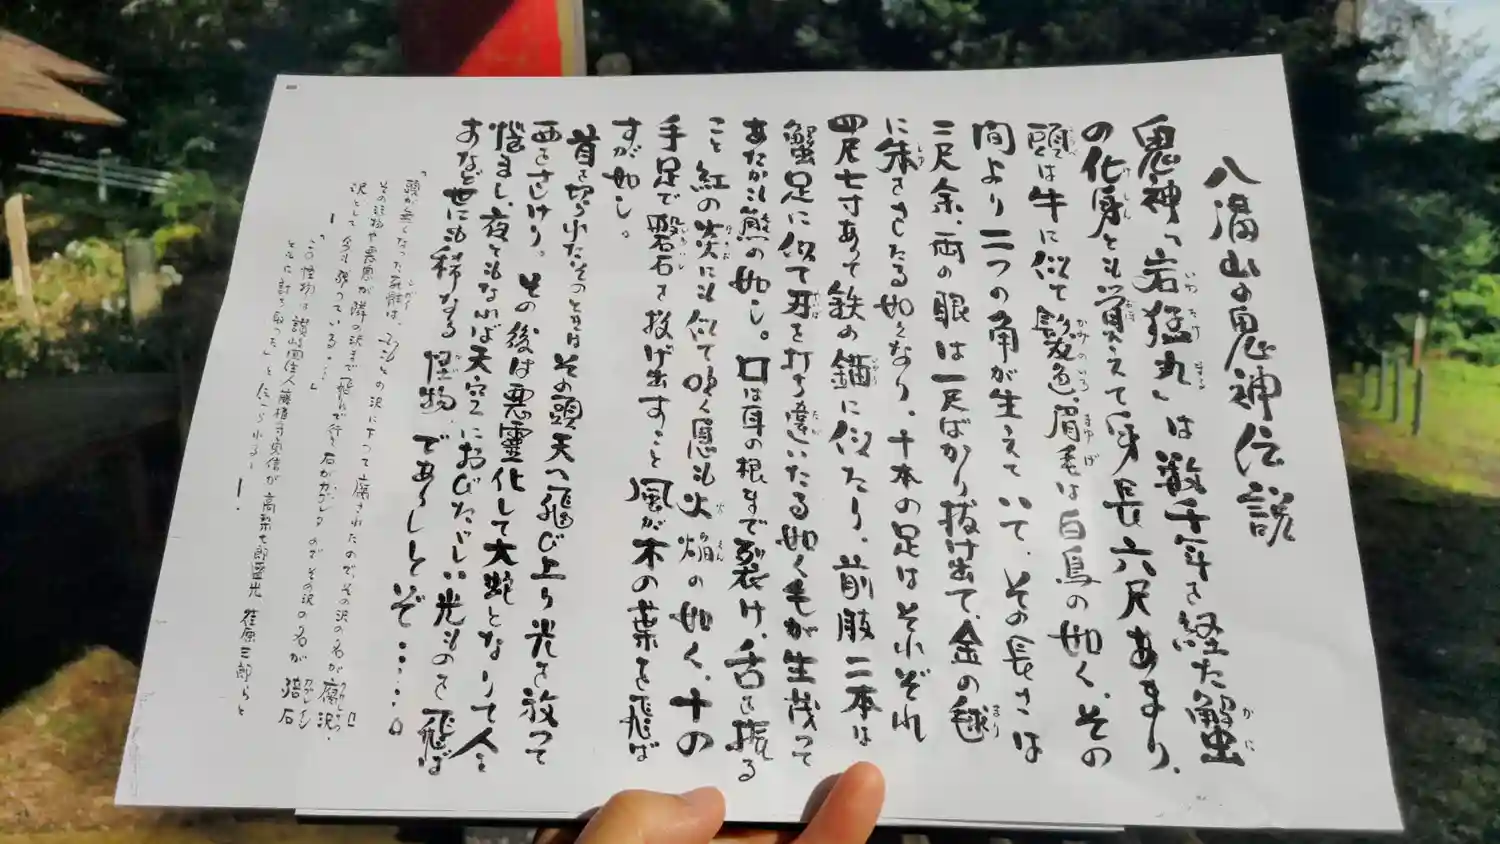 八溝山の鬼神伝説
鬼神「岩猛丸」は数千年を経た蟹
の化身とも覚えて身長六尺あまり、
頭は牛に似て髪色、眉毛は白鳥の如く、その
間より二つの角が生えて いて、その長さは
二尺余、両の眼は一尺ばかり抜け出て、金の毬
に朱をさしたる如くなり、十本の足はそれぞれ
四尺七寸あって鉄の錨に似たり、前肢二本は
蟹足に似て刃を打ち違いたる如く毛が生茂って
あたかも熊の如し。口は耳の根まで裂け、舌を振る
こと紅の炎にも似て吹く息も火焔の如く、十の
手足で磐石を投げ出すこと風が木の葉を飛ば
すが如し。
首を切られたそのときはその頭天へ飛び上り光を放って
西をさしけり。その後は悪霊化して大蛇となりて人を
悩まし、夜ともなれば天空におびただしい光ものを飛ば
すなど世にも稀なる怪物、であらしとぞ・・・・・。
「頭が無くなった死骸は、ふもとの沢に下って腐されたので、その沢の名が腐沢、
その怪物や悪鬼が隣の沢まで飛んで行き石がカブレタのでその沢の名が 石
沢として今も残っている・・・」
ー「この怪物は讃岐国住人藤権守貞信が高梨七郎盛光 荏原三郎らと
ともに討ち取った」と伝へられるーー。